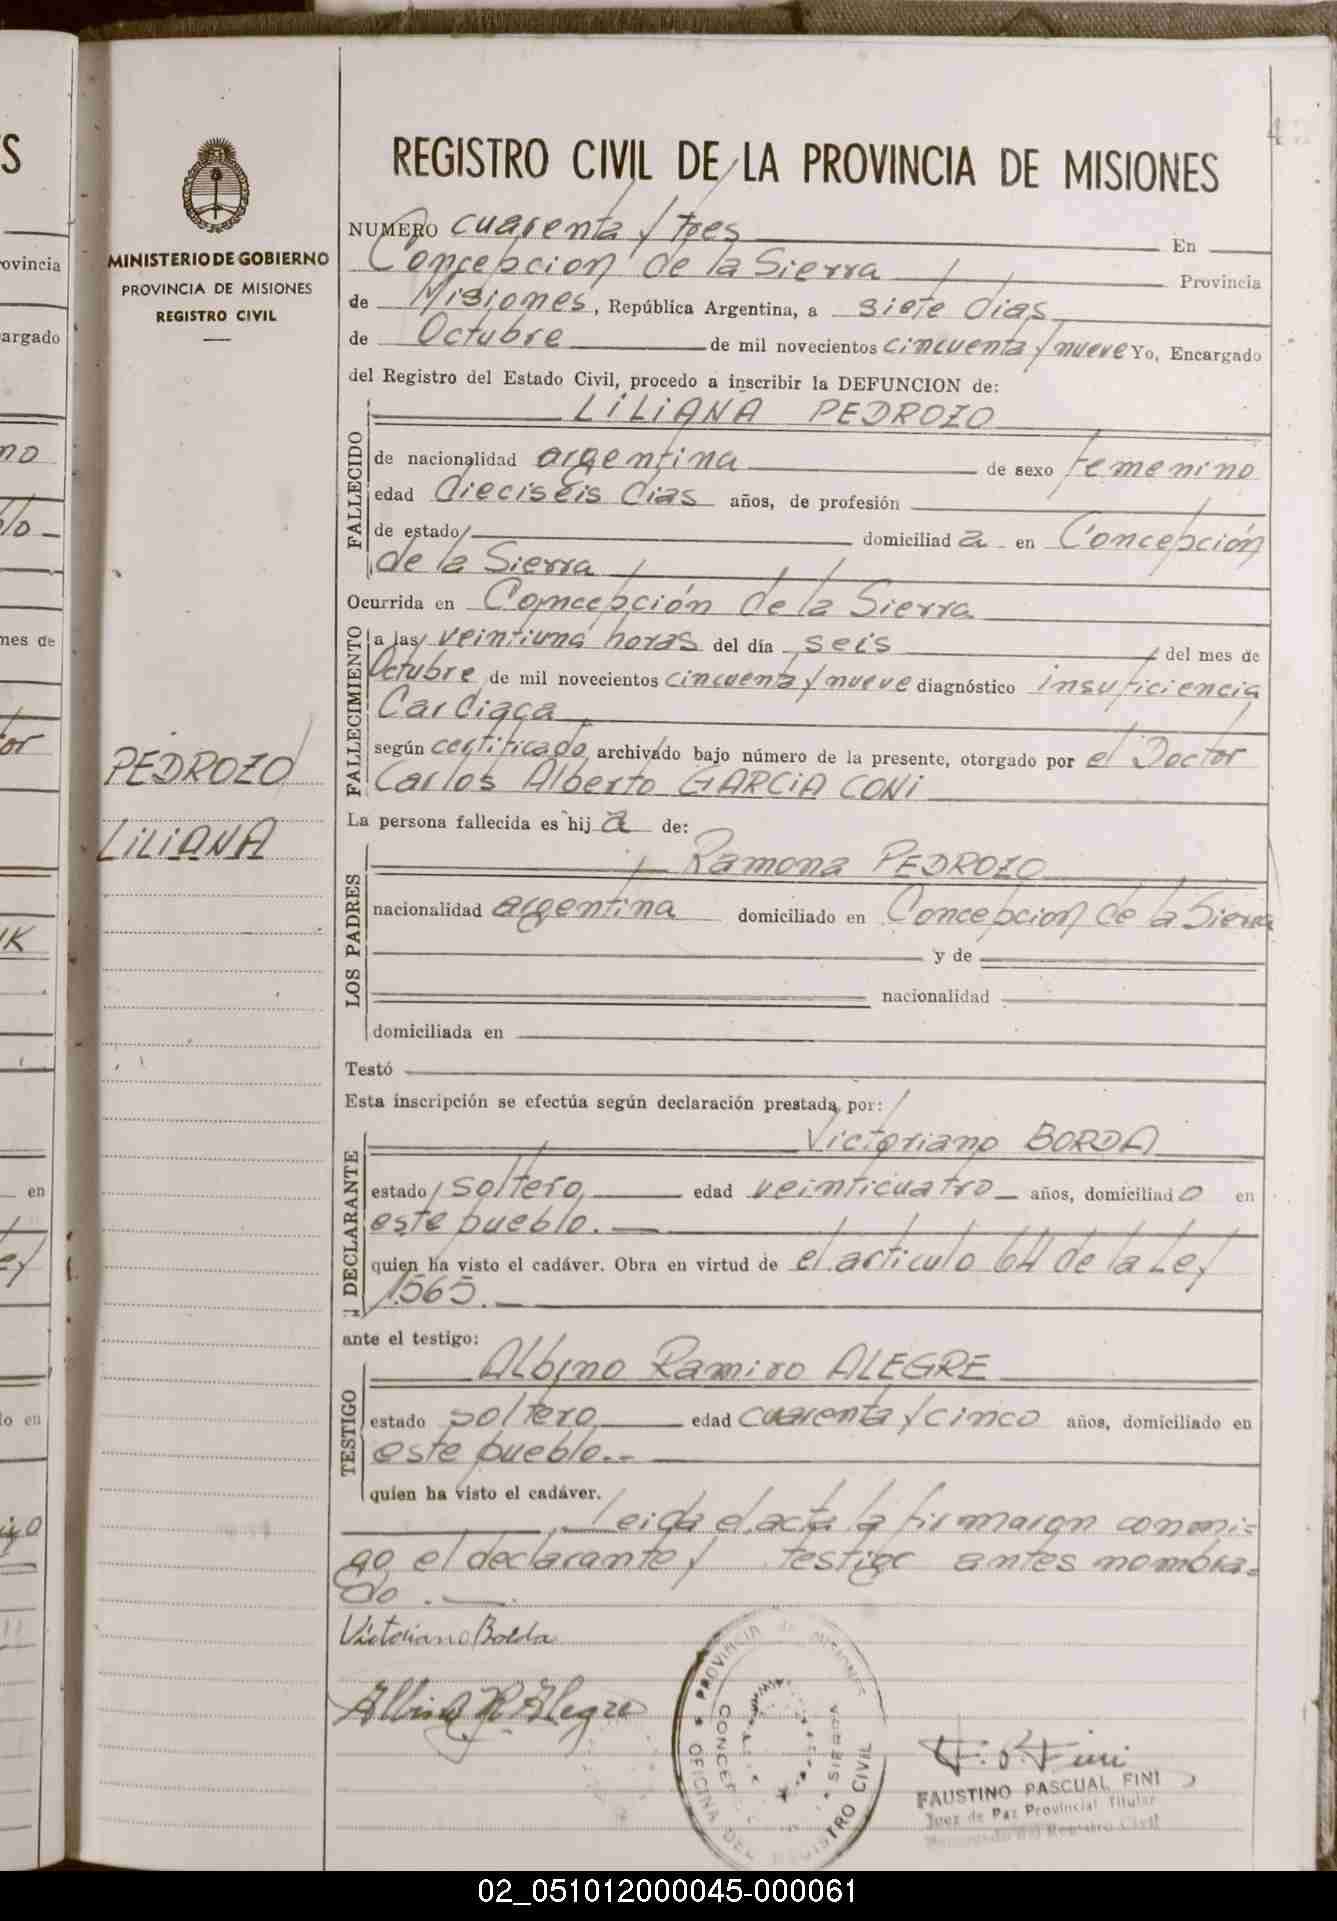 REGISTRO CIVIL DE LA PROVINCIA DE MISIONES
MINISTERIO DE GOBIERNO
PROVINCIA DE MISIONES
REGISTRO CIVIL
PEDROZO
LILIANA
NUMERO cuarenta y tres En
Concepcion de la Sierra Provincia
de Misiones, República Argentina, a siete dias
de Octubre de mil novecientos cincuenta y nueve Yo, Encargado
del Registro del Estado Civil, procedo a inscribir la DEFUNCION de:
LILIANA PEDROZO
FALLECIDO
de nacionalidad argentina de sexo femenino
edad dieciseis dias años, de profesión
de estado domiciliad a en Concepción
de la Sierra
Ocurrida en Concepción de la Sierra
FALLECIMIENTO
a las veintiuna horas del día seis del mes de
Octubre de mil novecientos cincuenta y nueve diagnóstico insuficiencia
Cardiaca
según certificado archivado bajo número de la presente, otorgado por el Doctor
Carlos Alberto GARCIA CONI
La persona fallecida es hij a de:
LOS PADRES
Ramona PEDROZO
nacionalidad argentina domiciliado en Concepcion de la Sierra
y de
nacionalidad
domiciliada en
Testó
Esta inscripción se efectúa según declaración prestada por:
DECLARANTE
Victoriano BORDA
estado soltero edad veinticuatro años, domiciliad o en
este pueblo.
quien ha visto el cadáver. Obra en virtud de el articulo 64 de la Ley
1.565.
ante el testigo:
TESTIGO
Albino Ramiro ALEGRE
estado soltero edad cuarenta y cinco años, domiciliado en
este pueblo.-
quien ha visto el cadáver.
Leida el acta la firmaron conmi=
go el declarante y testigo antes nombra=
do.
Victoriano Borda
Albino R Alegre
PROVINCIA de MISIONES
OFICINA DEL REGISTRO CIVIL
F. P. Fini
FAUSTINO PASCUAL FINI
Juez de Paz Provincial Titular
Encargado del Registro Civil
02_051012000045-000061